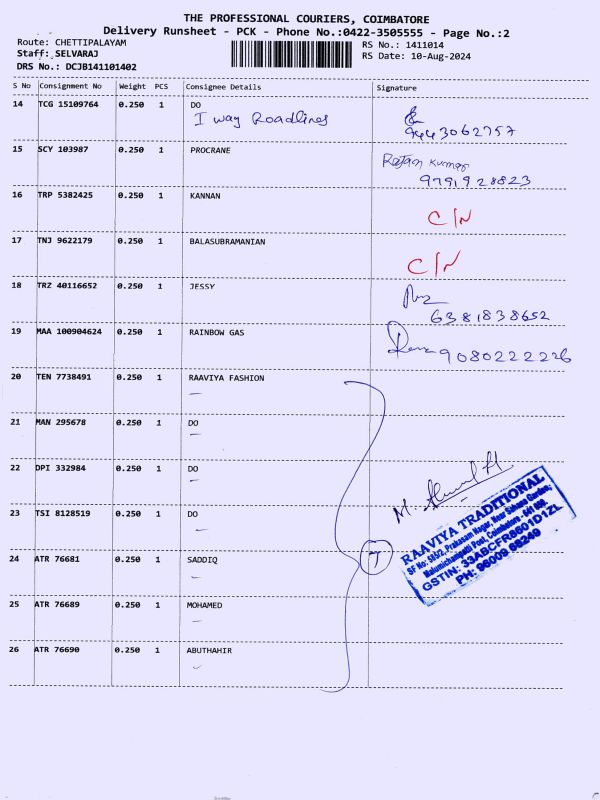 THE PROFESSIONAL COURIERS, COIMBATORE
Delivery Runsheet - PCK - Phone No.:0422-3505555 - Page No.:2
Route: CHETTIPALAYAM
RS No.: 1411014
Staff: SELVARAJ
RS Date: 10-Aug-2024
DRS No.: DCJB141101402
S No Consignment No Weight PCS Consignee Details Signature
14 TCG 15109764 0.250 1 DO
I way Roadlines
9443062757
15 SCY 103987 0.250 1 PROCRANE
Rajan Kumar
9791928823
16 TRP 5382425 0.250 1 KANNAN
C/N
17 TNJ 9622179 0.250 1 BALASUBRAMANIAN
C/N
18 TRZ 40116652 0.250 1 JESSY
6381838652
19 MAA 100904624 0.250 1 RAINBOW GAS
9080222226
20 TEN 7738491 0.250 1 RAAVIYA FASHION
21 MAN 295678 0.250 1 DO
22 DPI 332984 0.250 1 DO
23 TSI 8128519 0.250 1 DO
24 ATR 76681 0.250 1 SADDIQ
7
25 ATR 76689 0.250 1 MOHAMED
26 ATR 76690 0.250 1 ABUTHAHIR
RAAVIYA TRADITIONAL
SF No: 565/2, Prakasam Nagar, Near Sahana Garden,
Malumichampatti Post, Coimbatore - 641 050.
GSTIN: 33ABCFR8601D1ZL
PH: 96009 68249